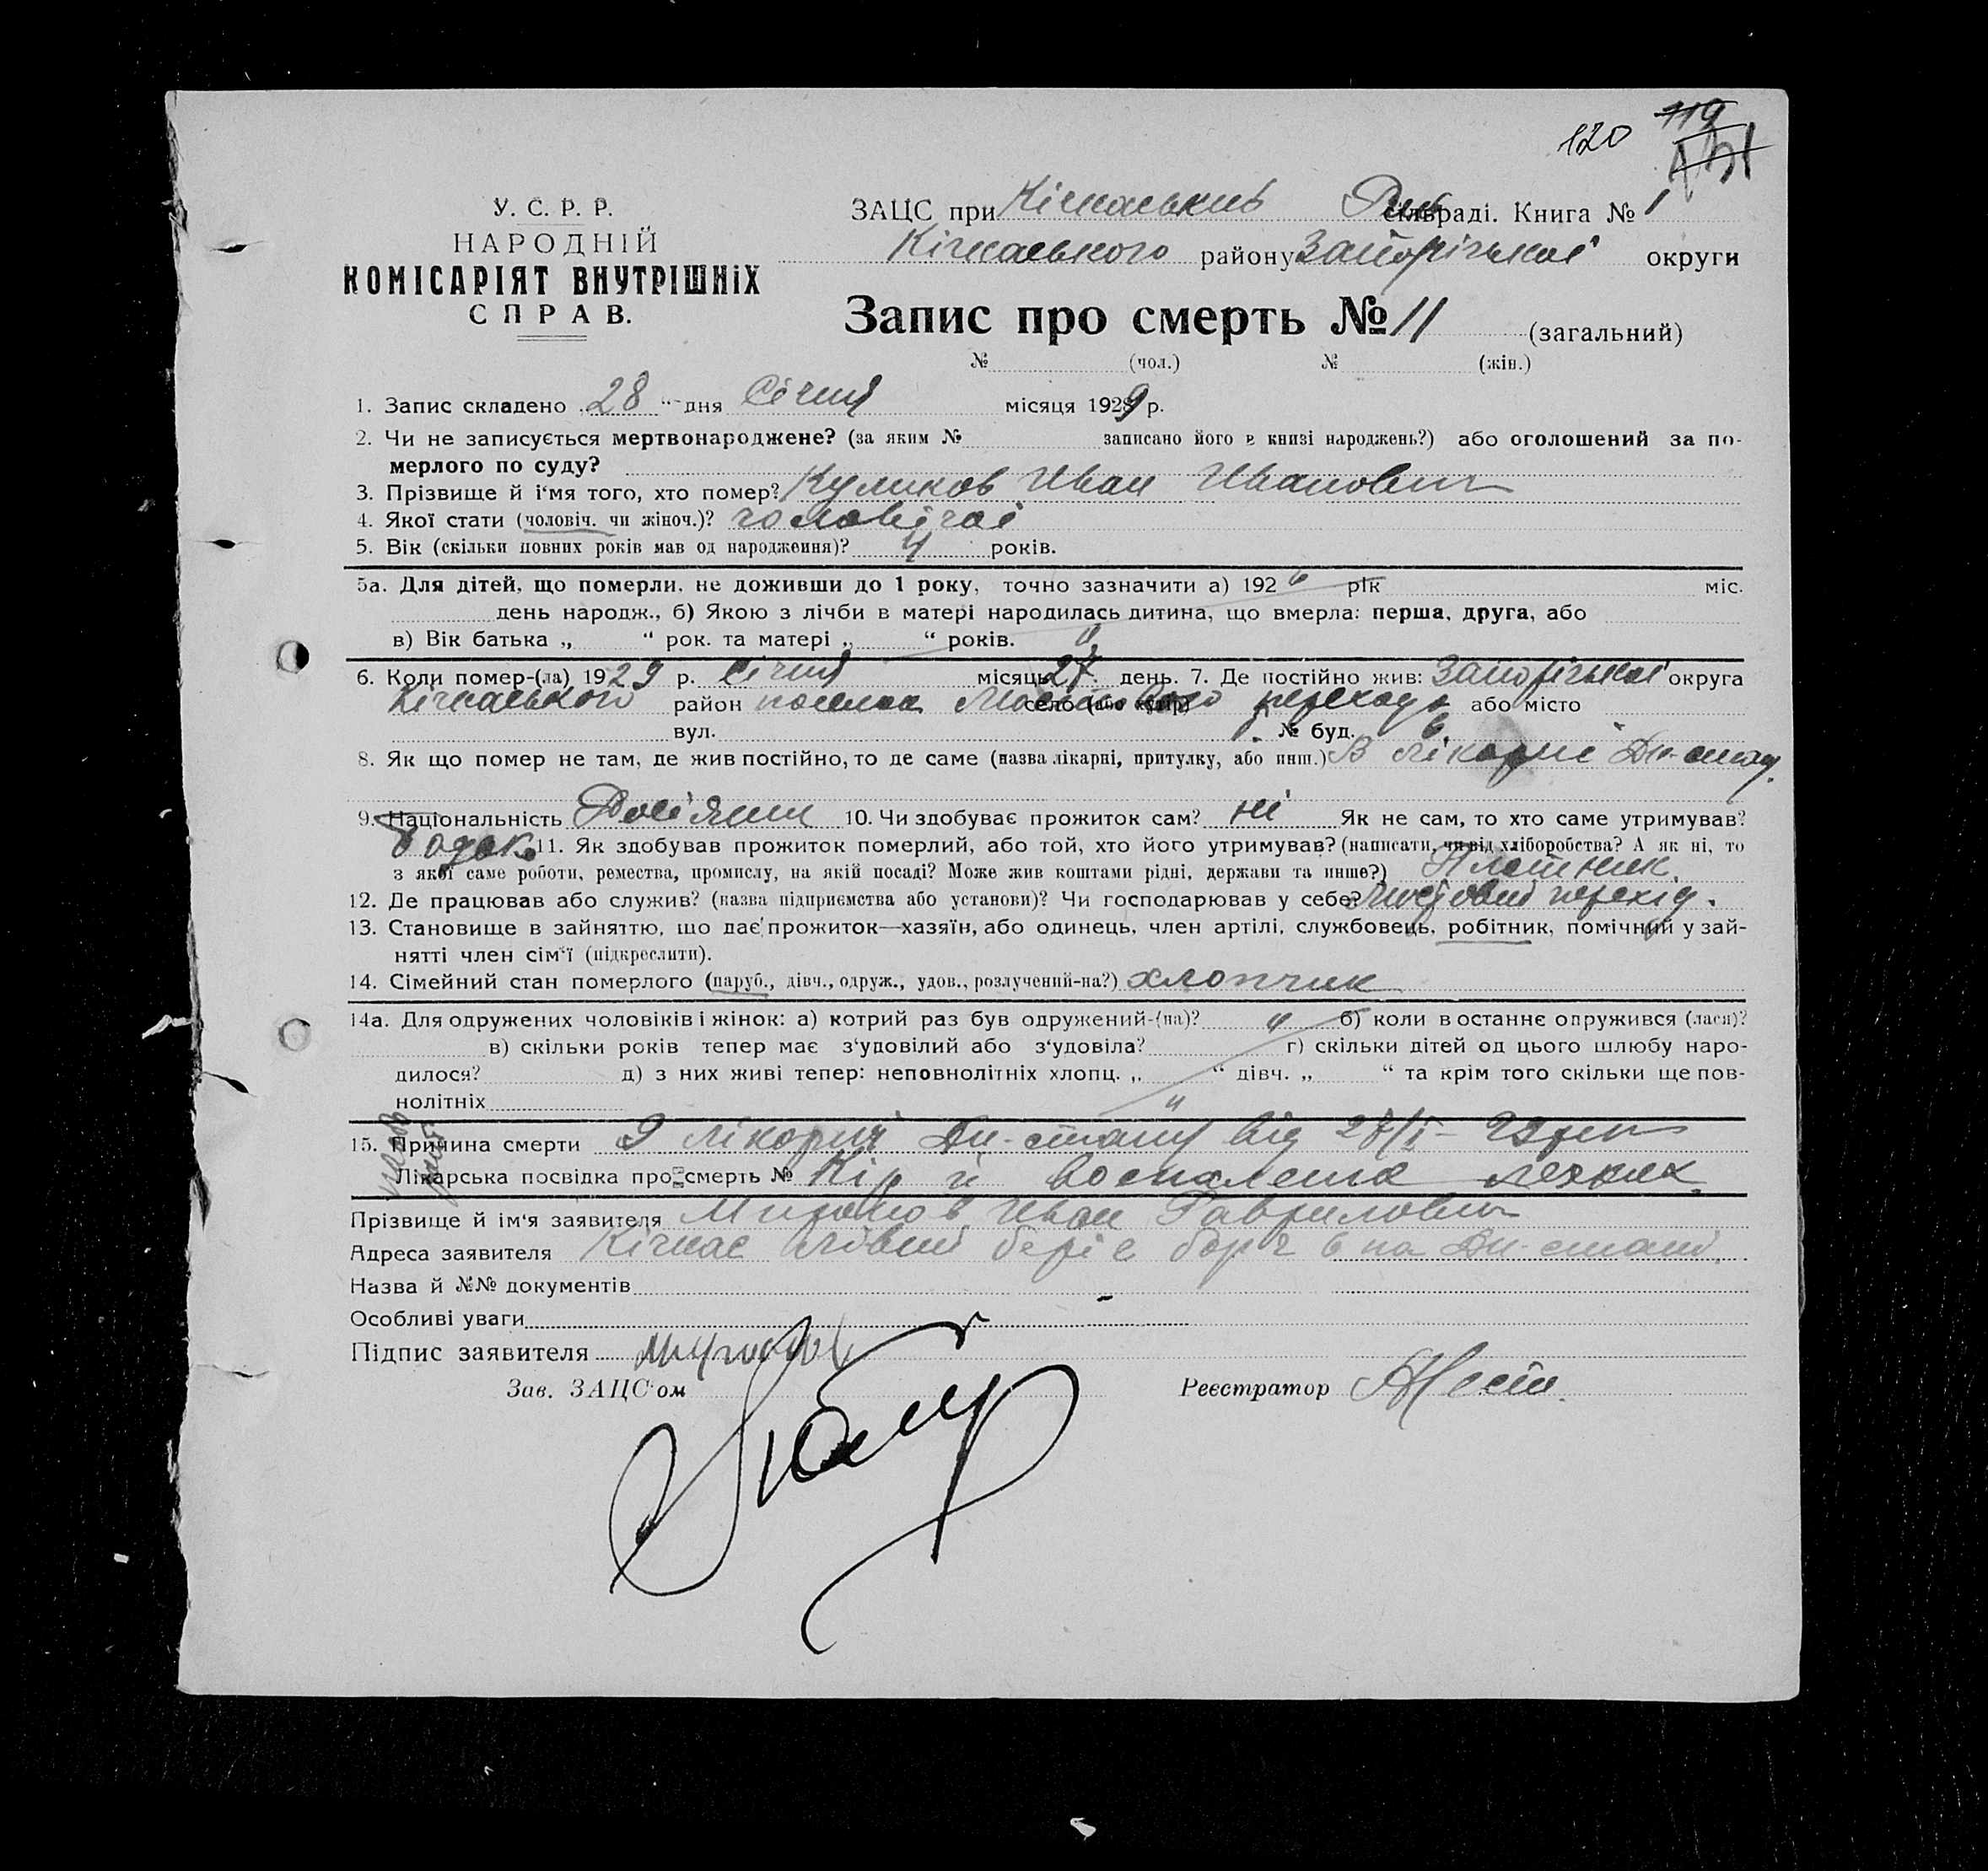 120 119
У. С. Р. Р.
НАРОДНІЙ
КОМІСАРІЯТ ВНУТРІШНІХ
СПРАВ.
ЗАЦС при Кічкаський Рай сільраді. Книга № 1
Кічкаського району Запорізької округи
Запис про смерть № 11 (загальний)
№ (чол.) № (жін.)
1. Запис складено 28 "дня Січня місяця 1929 р.
2. Чи не записується мертвонароджене? (за яким № записано його в книзі народжень?) або оголошений за по-
мерлого по суду?
3. Прізвище й і'мя того, хто помер? Куликов Иван Иванович
4. Якої стати (чоловіч. чи жіноч.)? чоловічої
5. Вік (скільки повних років мав од народження)? 4 років.
5а. Для дітей, що померли, не доживши до 1 року, точно зазначити а) 192 " рік міс.
день народж., б) Якою з лічби в матері народилась дитина, що вмерла: перша, друга, або
в) Вік батька „ “ рок. та матері „ “ років. "
6. Коли помер-(ла) 1929 р. Січня місяць 27 день. 7. Де постійно жив: Запорізької округа
Кічкаського район поселок Мостового переходу село (або хутір) або місто
вул. № буд. 6
8. Як що помер не там, де жив постійно, то де саме (назва лікарні, притулку, або инш.) В лікарні Дн-стану.
9. Національність Росіянин 10. Чи здобуває прожиток сам? ні Як не сам, то хто саме утримував?
11. Як здобував прожиток померлий, або той, хто його утримував? (написати, чи від хліборобства? А як ні, то
з якої саме роботи, ремества, промислу, на якій посаді? Може жив коштами рідні, держави та инше?) Плотник.
12. Де працював або служив? (назва підприємства або установи)? Чи господарював у себе? Мостовий перехід.
13. Становище в зайняттю, що дає прожиток—хазяїн, або одинець, член артілі, службовець, робітник, помічний у зай-
нятті член сім'ї (підкреслити).
14. Сімейний стан померлого (паруб., дівч., одруж., удов., розлучений-на?) хлопчик
14а. Для одружених чоловіків і жінок: а) котрий раз був одружений-(на)? " б) коли в останнє опружився (лася)?
в) скільки років тепер має з'удовілий або з'удовіла? г) скільки дітей од цього шлюбу наро-
дилося? д) з них живі тепер: неповнолітніх хлопц. „ “ дівч. „ “ та крім того скільки ще пов-
нолітніх "
15. Причина смерти З лікарні Дн-стану від 28/I-29
Лікарська посвідка про смерть № Кір й воспаление легких.
Прізвище й ім'я заявителя Миронов Иван Гаврилович
Адреса заявителя Кічкас лівий беріг 6 на Дн-стані.
Назва й №№ документів
Особливі уваги
Підпис заявителя
Зав. ЗАЦС'ом Реєстратор